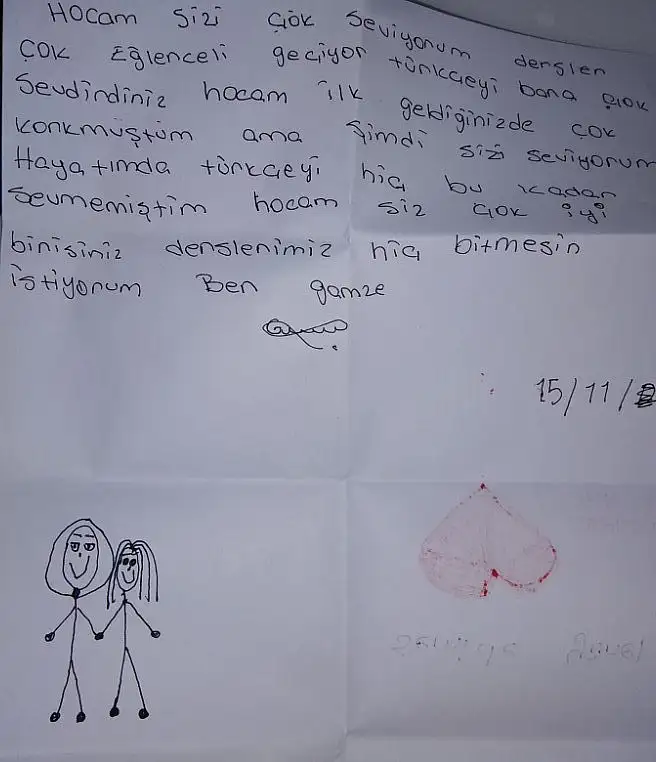 Hocam sizi çok seviyorum dersler
çok Eğlenceli geçiyor türkçeyi bana çok
Sevdirdiniz hocam ilk geldiğinizde çok
korkmuştum ama şimdi sizi seviyorum
Hayatımda türkçeyi hiç bu kadar
Sevmemiştim hocam siz çok iyi
birisiniz derslerimiz hiç bitmesin
istiyorum Ben gamze
15/11/